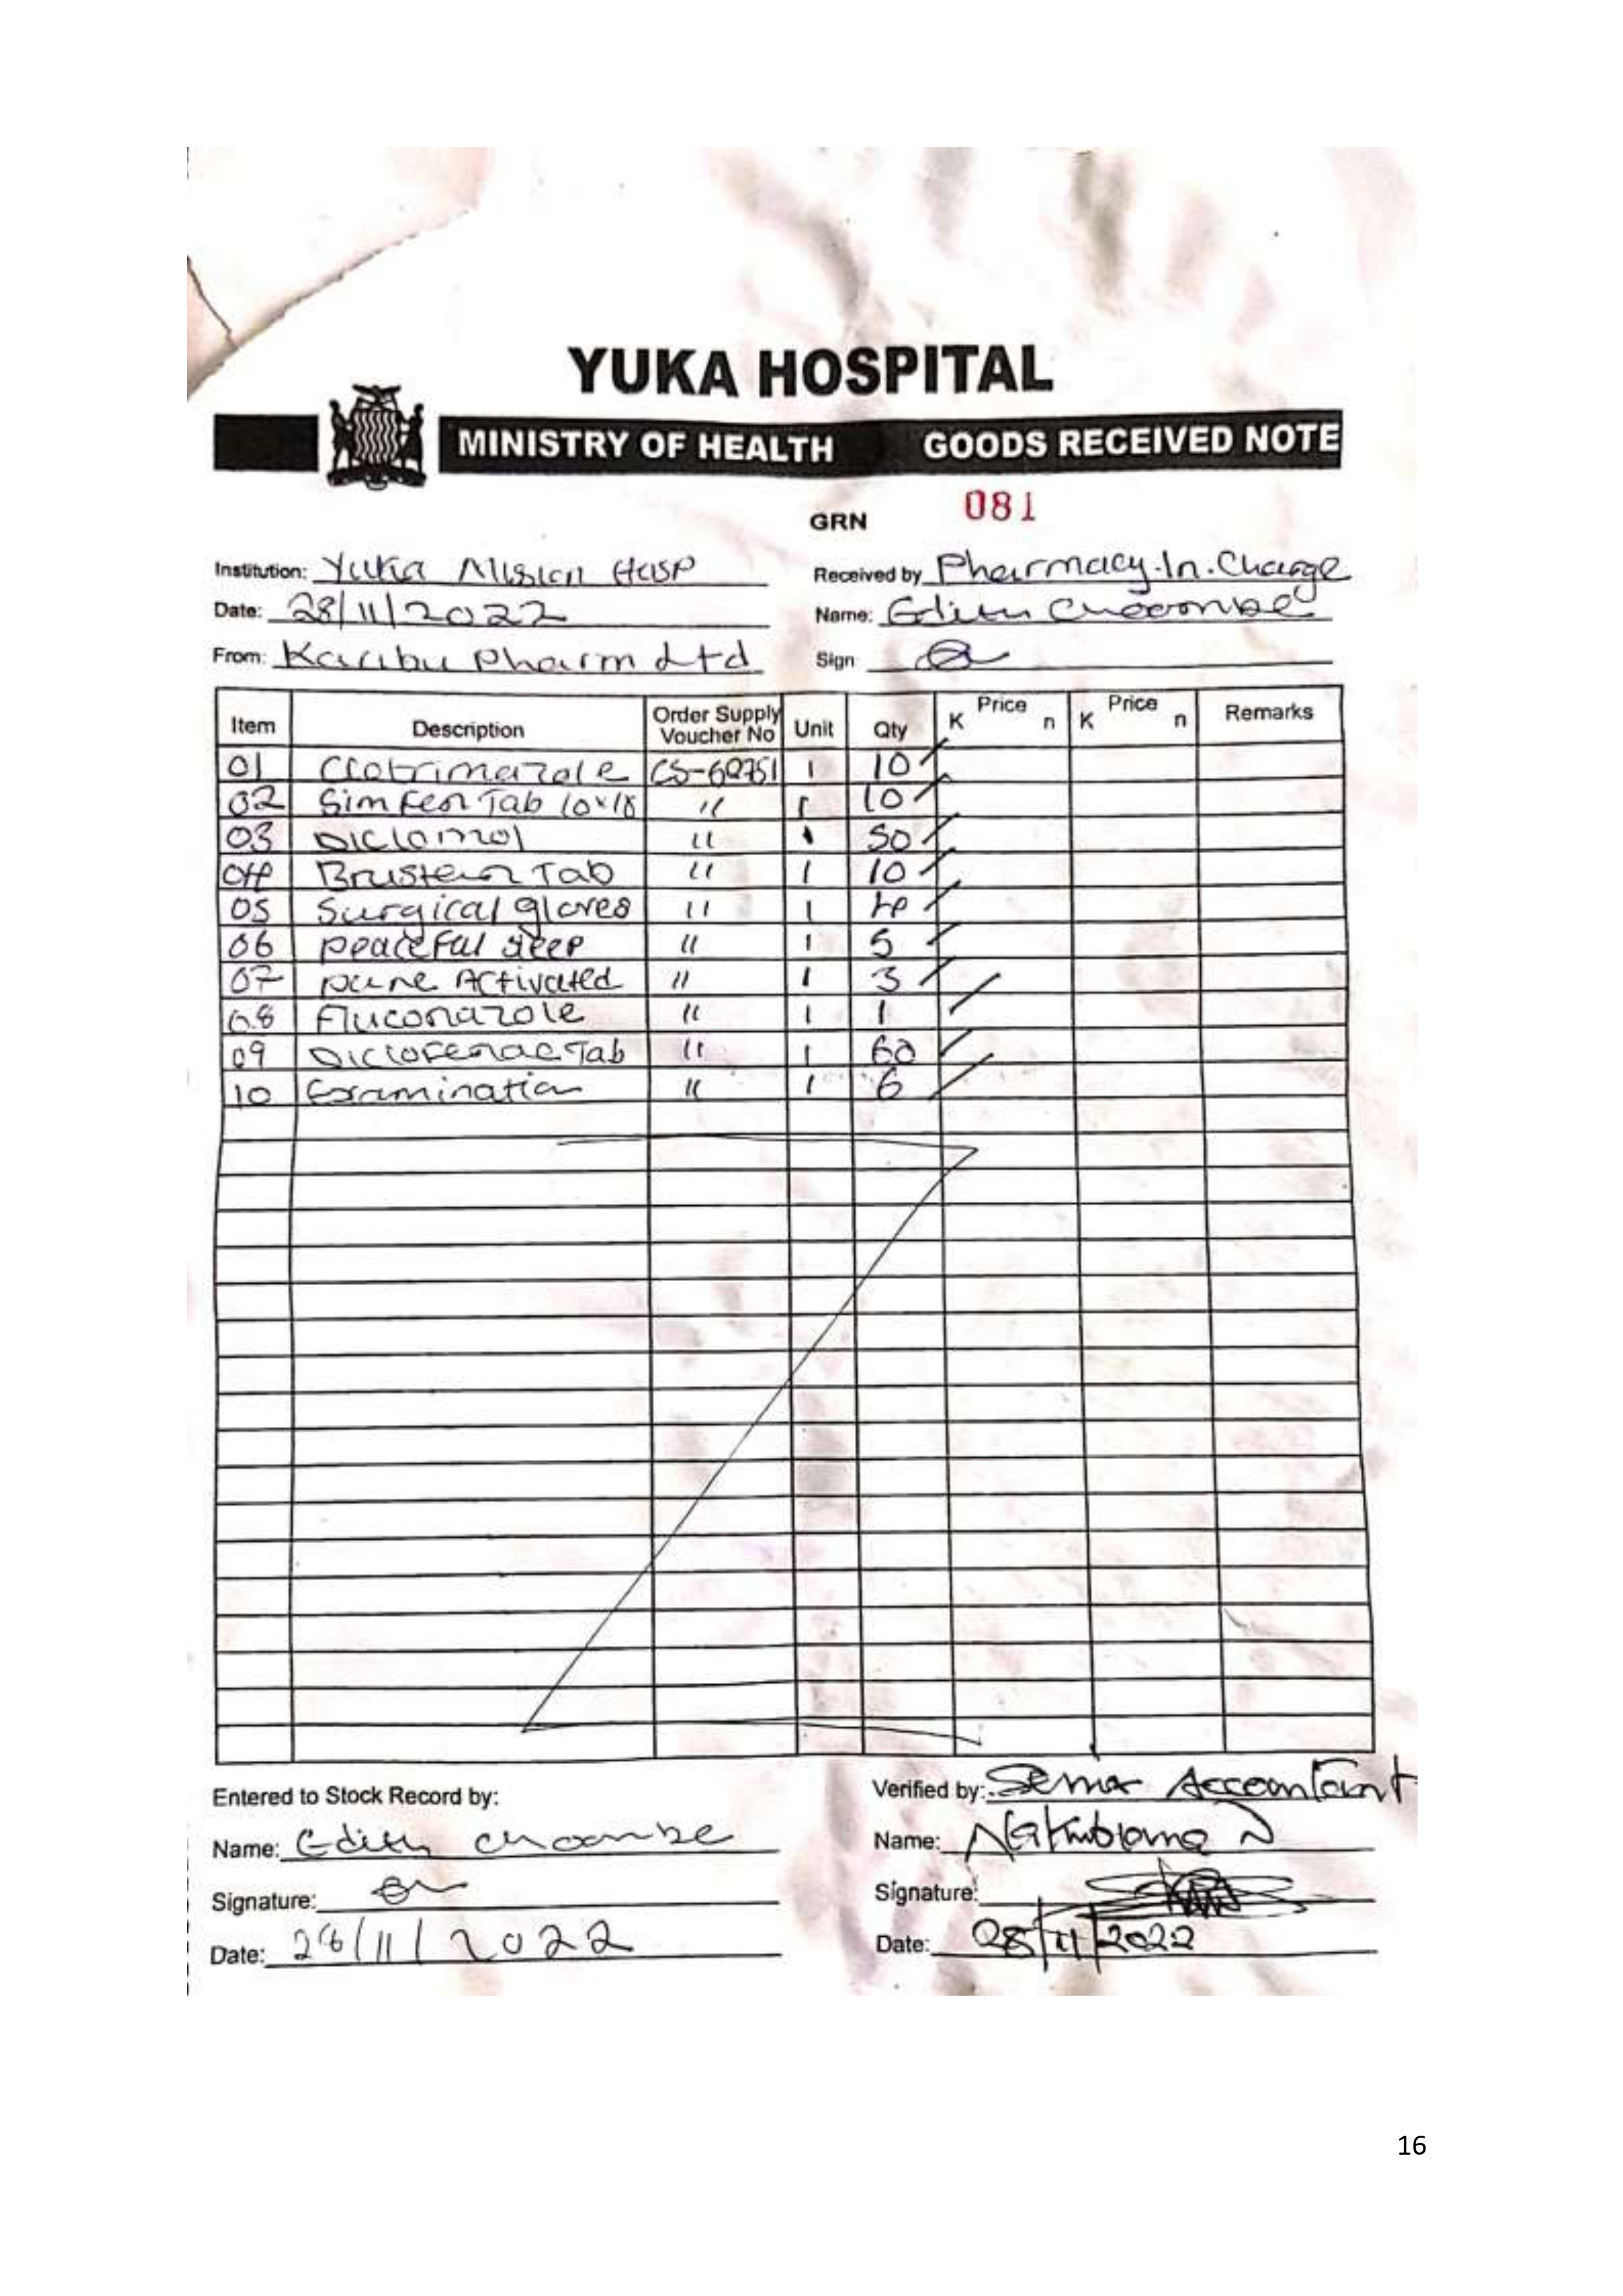 YUKA HOSPITAL
MINISTRY OF HEALTH GOODS RECEIVED NOTE
GRN 081
Institution: Yuka Mission Hosp Received by Pharmacy.In.Charge
Date: 28/11/2022 Name: Edith
From: Karibu Pharm Ltd Sign
Item Description Order Supply Voucher No Unit Qty Price K n Price K n Remarks
01 Clotrimazole CS-60751 1 10
02 Simfen Tab 10x10 " 1 10
03 Diclomol " 1 50
04 Brustan Tab " 1 10
05 Surgical gloves " 1 4
06 peaceful sleep " 1 5
07 Activated " 1 3
08 Fluconazole " 1 1
09 Diclofenac Tab " 1 60
10 Examination " 1 6
Entered to Stock Record by: Verified by: Senior Accountant
Name: Edith Choombe Name:
Signature: Signature:
Date: 28/11/2022 Date: 28/11/2022
16